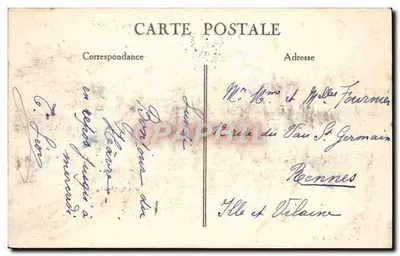 CARTE POSTALE
Correspondance
Adresse
Lundi
Bonjour du
Hâvre
en repos jusqu'à
mercredi
Mr Mme et Melles Fournier
rue du Vau St Germain
Rennes
Ille et Vilaine